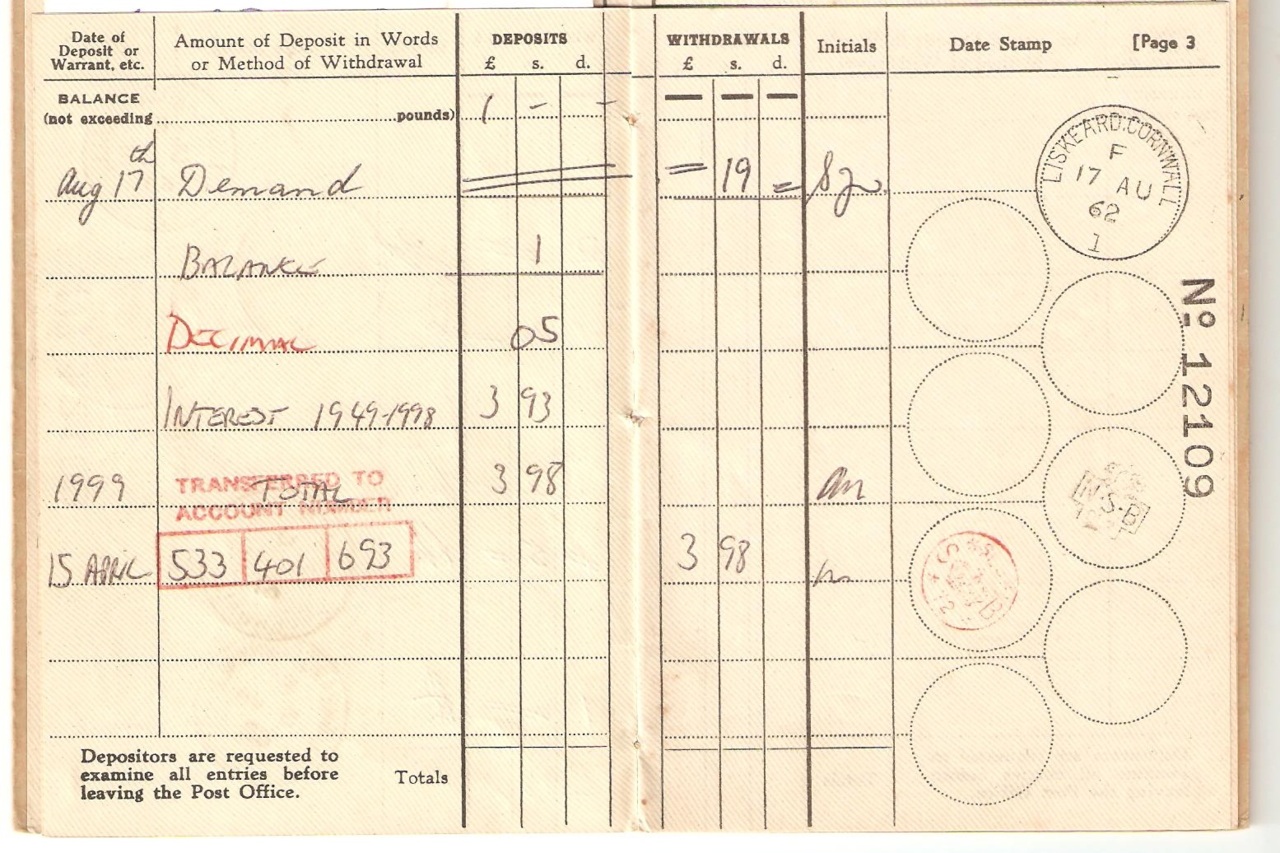 Date of Deposit or Warrant, etc. Amount of Deposit in Words or Method of Withdrawal DEPOSITS £ s. d. WITHDRAWALS £ s. d. Initials Date Stamp [Page 3
BALANCE (not exceeding pounds) 1 - - — — —
Aug 17th Demand = 19 =
LISKEARD.CORNWALL
F
17 AU
62
1
BALANCE 1
DECIMAL 05
INTEREST 1949-1998 3 93
1999 TOTAL 3 98
TRANSFERRED TO
ACCOUNT NUMBER
15 APRIL 533 401 693 3 98
N.S.B
Nº 12109
Depositors are requested to
examine all entries before
leaving the Post Office.
Totals